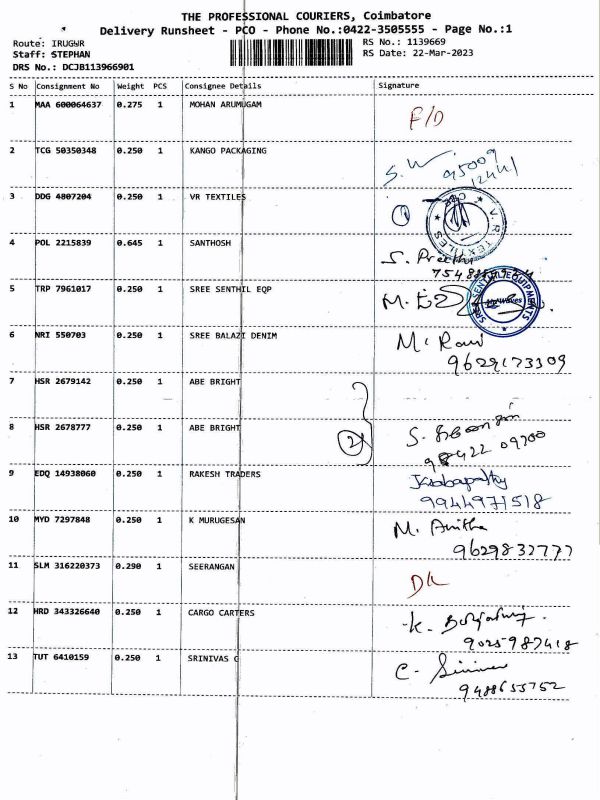 THE PROFESSIONAL COURIERS, Coimbatore
Delivery Runsheet - PCO - Phone No.:0422-3505555 - Page No.:1
Route: IRUGWR RS No.: 1139669
Staff: STEPHAN RS Date: 22-Mar-2023
DRS No.: DCJB113966901
S No Consignment No Weight PCS Consignee Details Signature
1 MAA 600064637 0.275 1 MOHAN ARUMUGAM F/D
2 TCG 50350348 0.250 1 KANGO PACKAGING S. 95009
12441
3 DDG 4807204 0.250 1 VR TEXTILES 1 V.R TEXTILES
4 POL 2215839 0.645 1 SANTHOSH S. Preethi
5 TRP 7961017 0.250 1 SREE SENTHIL EQP M. SREE SENTHIL EQUIPMENTS
6 NRI 550703 0.250 1 SREE BALAZI DENIM M. Ravi
9629173309
7 HSR 2679142 0.250 1 ABE BRIGHT
8 HSR 2678777 0.250 1 ABE BRIGHT 2 S.
98422 09700
9 EDQ 14938060 0.250 1 RAKESH TRADERS
9944971518
10 MYD 7297848 0.250 1 K MURUGESAN M. Anitha
9629832777
11 SLM 316220373 0.290 1 SEERANGAN DL
12 HRD 343326640 0.250 1 CARGO CARTERS K.
9025987418
13 TUT 6410159 0.250 1 SRINIVAS C C.
9488655752